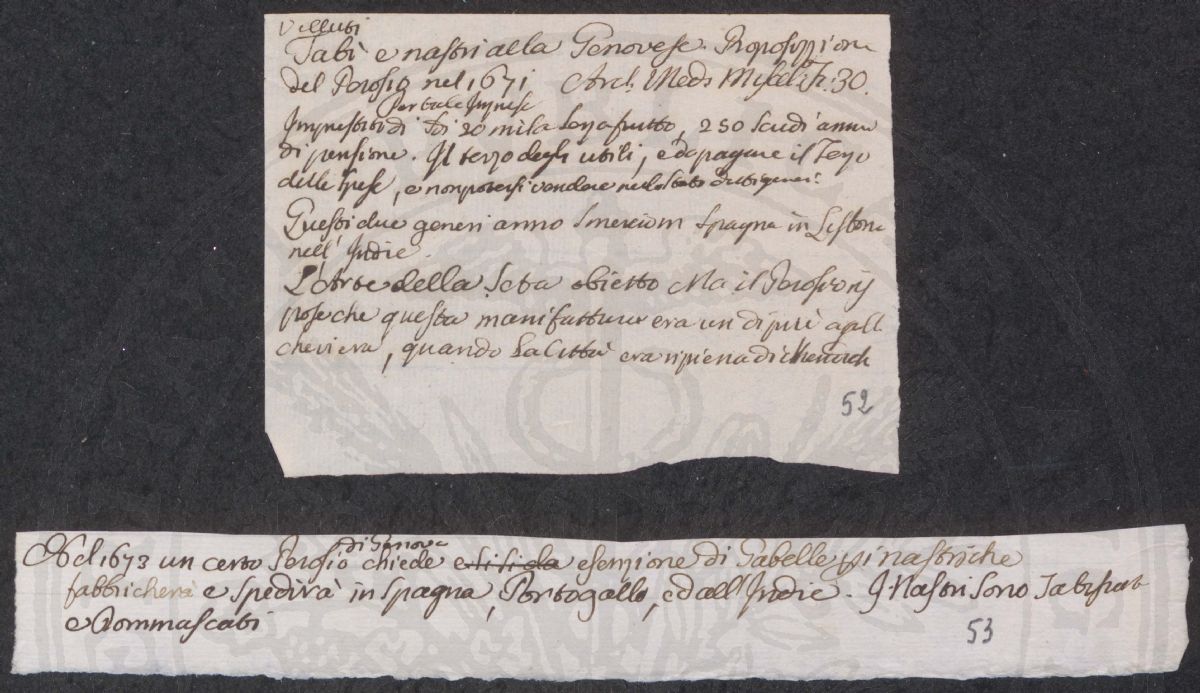 Velluti
Tabì e nastri alla Genovese. Proposizione
del Perosio nel 1671 Arch. Med. Miscel. Fz. 30.
Per tale Imprese
Imprestito di Sdi 20 mila senza frutto, 250 Scudi annui
di pensione. Il terzo degli utili, e da pagare il Terzo
delle spese, e non potersi vendere nello Stato detti generi.
Questi due generi anno Smercio in Spagna in Lisbona
nell' Indie.
L'Arte della Seta obiettò Ma il Perosio ris
pose che questa manifattura era un di più a quell
che vi era, quando la Città era ripiena di
52
di Genova
Nel 1673 un certo Perosio chiede e si fida esenzione di Gabelle pei nastri che
fabbricherà e spedirà in Spagna, Portogallo, ed all'Indie. I Nastri sono
e Dommascati
53